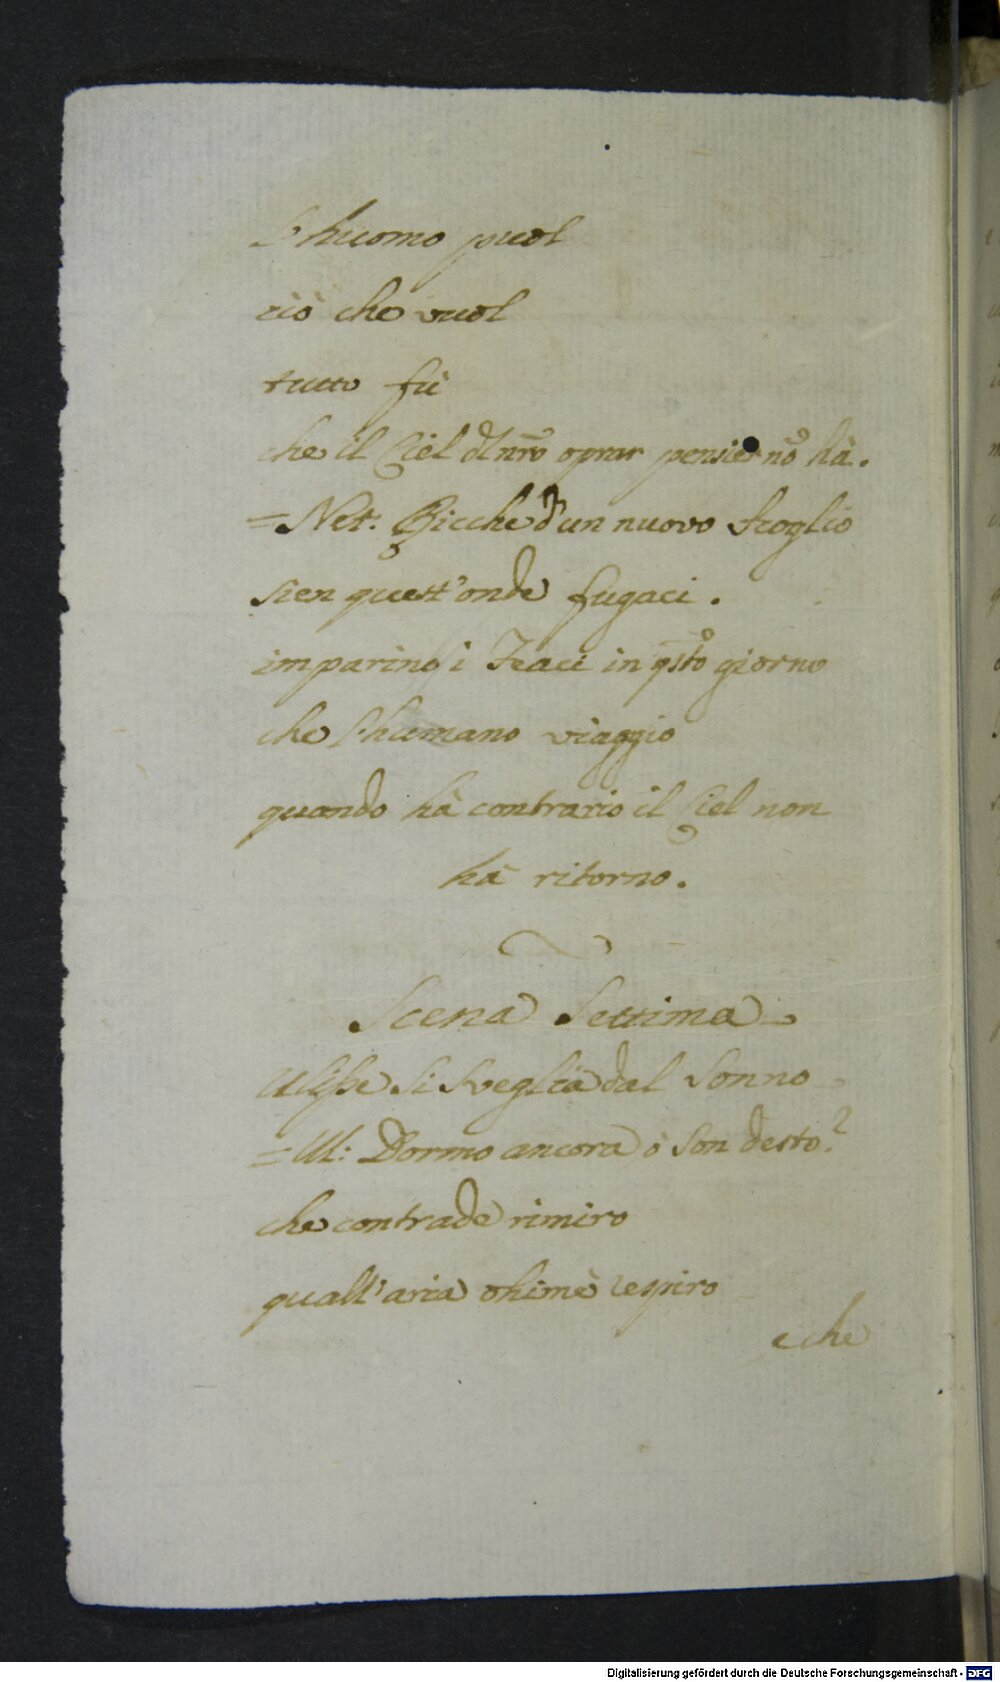 L'huomo puol
ciò che vuol
tutto fù
che il Ciel dl nro oprar pensier nõ hà.
=Net. Ricche d'un nuovo scoglio
sien quest'onde fugaci.
imparino i Feaci in qsto giorno
che l'humano viaggio
quando hà contrario il Ciel non
hà ritorno.
Scena Settima
Ulisse si sveglia dal sonno
=Ul: Dormo ancora ò son desto?
che contrade rimiro
quall'aria ohimè respiro
e che
Digitalisierung gefördert durch die Deutsche Forschungsgemeinschaft - DFG